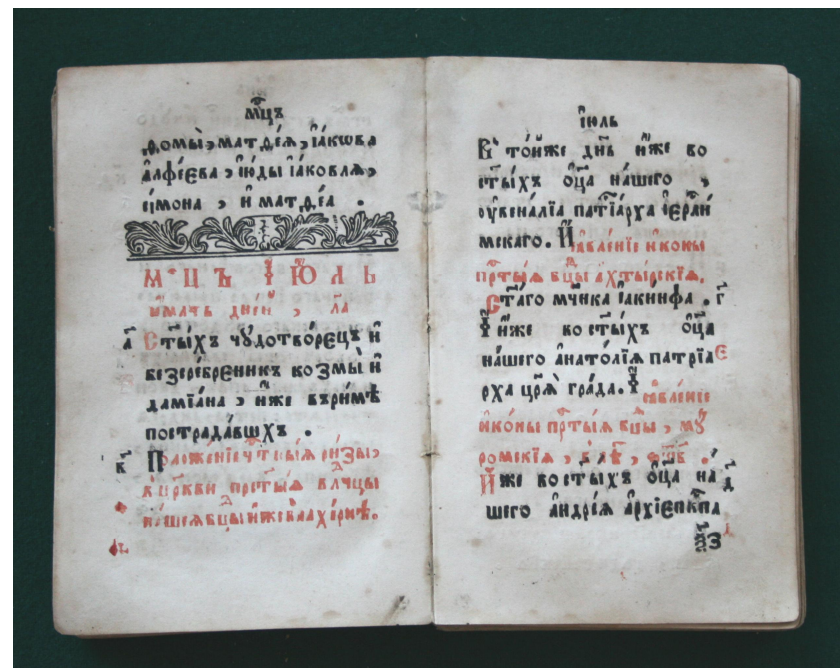 мц҃ъ
ѳомы̀, матѳе́а, і҆а́кѡва
а҆лфе́єва, і҆ꙋ́ды і҆а́ковлѧ,
сі́мона, и҆ матѳе́а.
мц҃ъ і҆ю́ль
и҆мать дне́й, ла
а҃
Ст҃ы́хъ чꙋдотво́рєцъ и҆
безсре́брєникъ козмы̀ и҆
дамїа́на, и҆же въ ри́мѣ
пострада́вшхъ.
в҃
Положе́нїе чⷭ҇тны́ѧ ри́зы,
в цр҃кви прест҃ы́ѧ влⷣчцы
на́шеѧ бцⷣы и҆же в влахе́рнѣ.
і҆юль
В то́йже дн҃ь и҆́же во
ст҃ы́хъ ѻ҆ц҃а на́шего,
ю҆вена́лїа патїа́рха і҆єрⷭ҇ли́
мскаго. И҆ ꙗ҆вле́нїе и҆коны
прⷭ҇ты́ѧ бцⷣы а҆хты́рскїѧ.
Ст҃а́го мч҃нка і҆аки́нфа. г҃
И҆ и҆́же во ст҃ы́хъ ѻ҆ц҃а
на́шего а҆нато́лїѧ патрїа
рха цр҃ѧ̀ гра́да. И҆ ꙗ҆вле́нїе
и҆ко́ны прⷭ҇ты́ѧ бцⷣы, мꙋ
ромскїѧ,
И҆́же во ст҃ы́хъ ѻ҆ц҃а на д҃
шего а҆ндре́ѧ а҆рхїє҆пкⷭ҇па